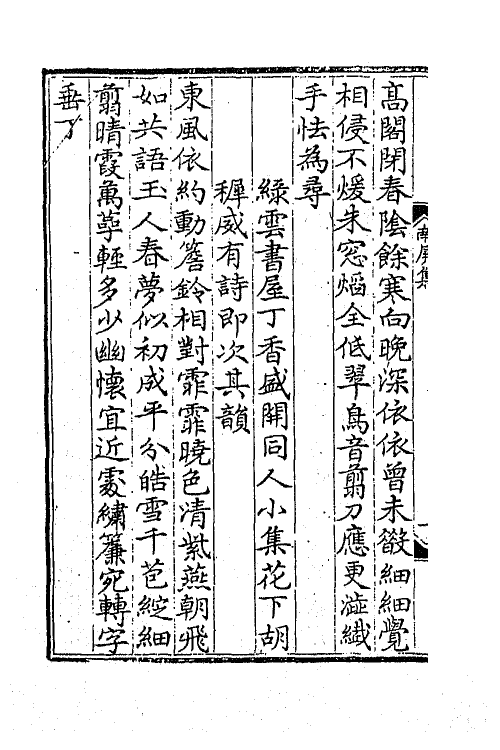 高閣閉春陰餘寒向晚深依依曾未㪚細細覺
相侵不煖朱窓熖全低翠鳥音翦刀應更澁纖
手怯為尋
綠雲書屋丁香盛開同人小集花下胡
穉威有詩即次其韻
東風依約動簷鈴相對霏霏曉色凊紫燕朝飛
如共語玉人春夢似初成平分皓雪千苞綻細
翦晴霞萬萼輕多少幽懷宜近處繡簾宛轉字
垂丁